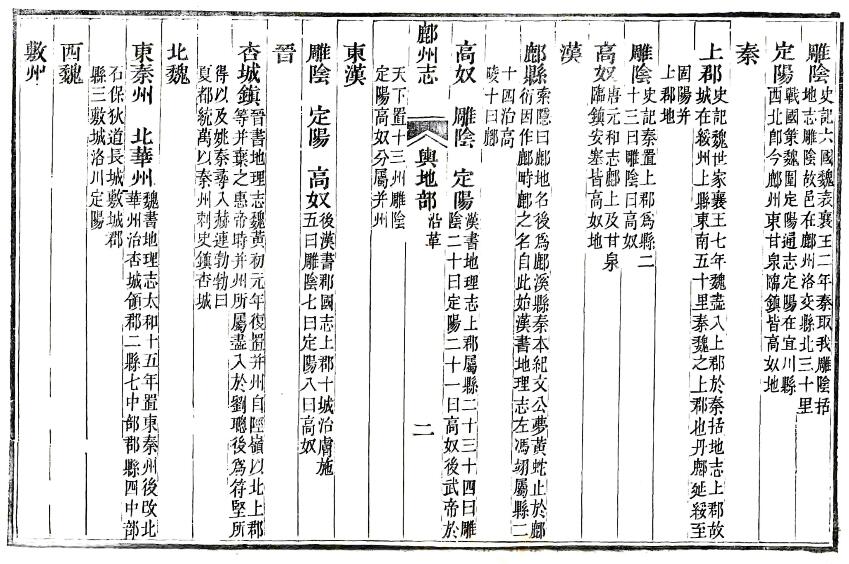 雕陰史記六國魏表襄王二年秦取我雕陰括
地志雕陰故邑在鄜州洛交縣北三十里
定陽戰國策魏圍定陽通志定陽在宜川縣
西北即今鄜州東甘泉臨鎮皆高奴地
秦
上郡史記魏世家襄王七年魏盡入上郡於秦括地志上郡故
城在綏州上縣東南五十里秦魏之上郡地丹鄜延綏至
固陽并
上郡地
雕陰史記秦置上郡為縣二
十三曰雕陰曰高奴
高奴唐元和志鄜上及甘泉
臨鎮安塞皆高奴地
漢
鄜縣索隱曰鄜地名後為鄜溪縣秦本紀文公夢黃蛇止於鄜
衍因作鄜畤鄜之名自此始漢書地理志左馮翊屬縣二
十四治高
陵十曰鄜
高奴 雕陰 定陽漢書地理志上郡屬縣二十三十四曰雕
陰二十曰定陽二十一曰高奴後武帝於
鄜州志 輿地部 沿革 二
天下置十三州雕陰
定陽高奴分屬并州
東漢
雕陰 定陽 高奴後漢書郡國志上郡十城治膚施
五曰雕陰七曰定陽八曰高奴
晉
杏城鎮晉書地理志魏黃初元年復置并州自陘嶺以北上郡
等并棄之惠帝時并州所屬盡入於劉聰後為符堅所
得以及姚秦尋入赫連勃勃曰
夏都統萬以秦州刺史鎮杏城
北魏
東秦州 北華州魏書地理志太和十五年置東秦州後改北
華州治杏城領郡二縣七中部郡縣四中部
石保狄道長城敷城郡
縣三敷城洛川定陽
西魏
敷州